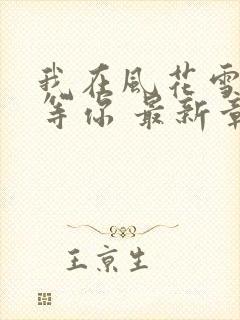 我在風花雪
等你 最新章
王京生